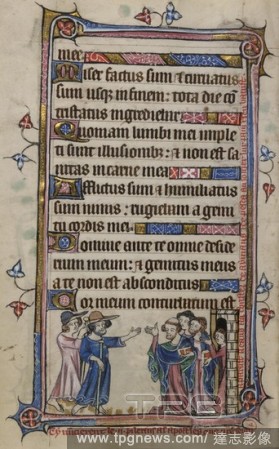 mee
Miser factus sum & curuatus
sum usq; in finem: tota die cō
tristatus ingrediebar
Quoniam lumbi mei imple
ti sunt illusionib;: & non est sa
nitas in carne mea
Aflictus sum & humiliatus
sum nimis: rugiebam a gemi
tu cordis mei
Domine ante te omne deside
rium meum: & gemitus meus
a te non est absconditus
Cor meum conturbatum est
TPG
www.tpgnews.com/ 達志影像